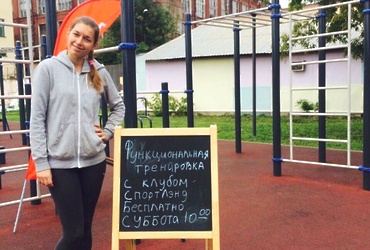 Функциональная
тренировка
с клубом
Спортлэнд
Бесплатно
Суббота 10 00